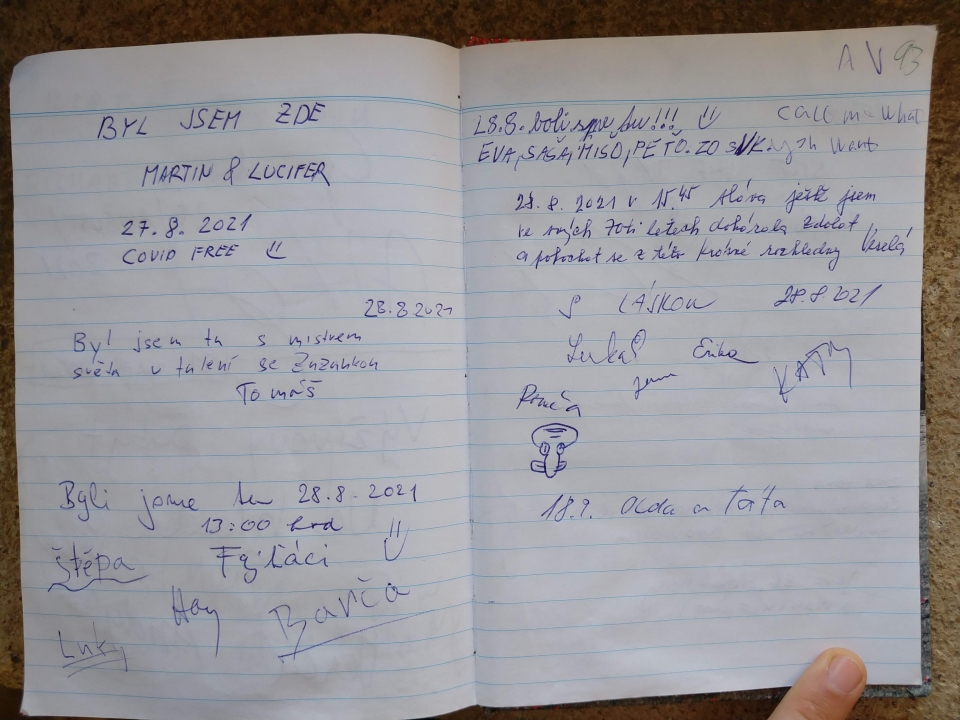 BYL JSEM ZDE
MARTIN & LUCIFER
27.8. 2021
COVID FREE
28.8.2021
Byl jsem tu s mistrem
světa v tulení se Zuzankou
Tomáš
Byli jsme tu 28.8.2021
13:00 hod
Štěpa
Hay
Barča
Luky
A V 93
28.8. boli sme tu!!!
Call me What
EVA, SAŠA, MIŠO, PEŤO. ZO SVK
Want
28.8. 2021 v 15.45 ještě jsem
ve svých 70ti letech dokázala zdolat
a pokochat se z této krásné rozhledny Veselá
S LÁSKOU 28.8.2021
Lukáš Erika
KATY
18.9. Olda a Táta